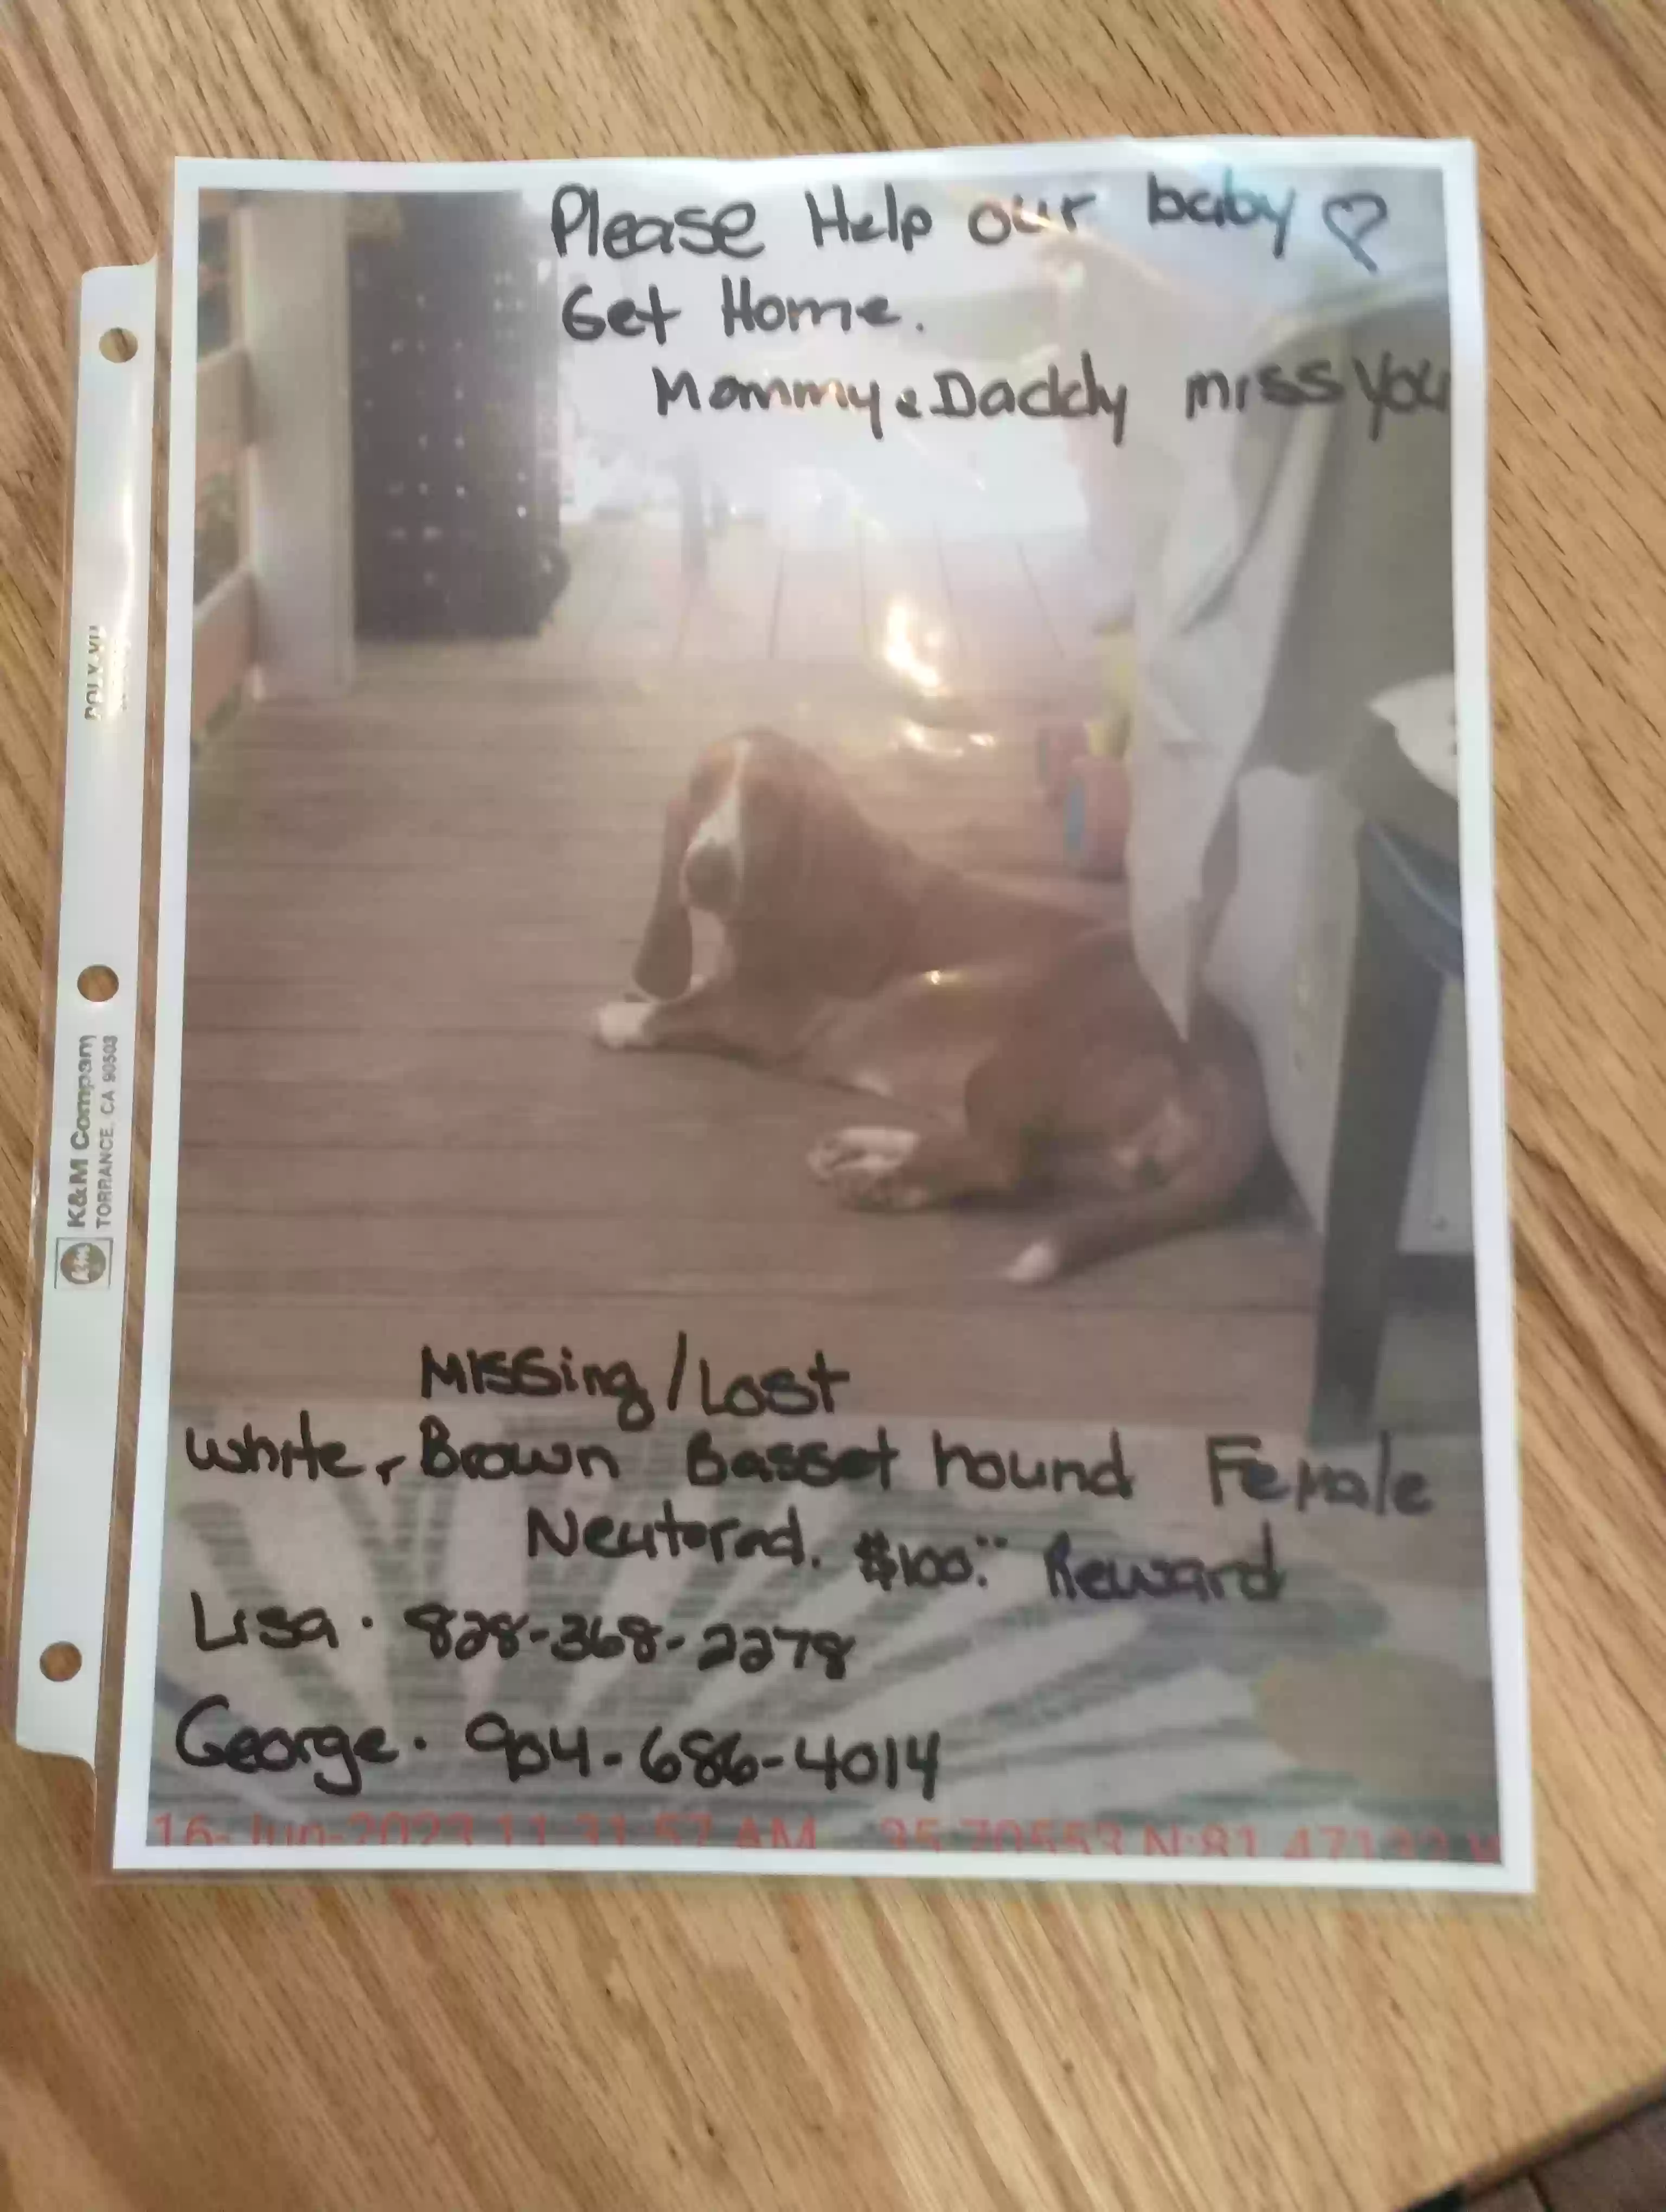 Please Help our baby ♡
Get Home.
Mommy & Daddy miss you
Missing/Lost
White & Brown Basset hound Female
Neutered. $100.00 Reward
Lisa · 828-368-2278
George · 904-686-4014
16-Jun-2023 11:31:57 AM 35.70553 N:81.47132 W
POLY-VU
K&M Company
TORRANCE, CA 90503
K&M